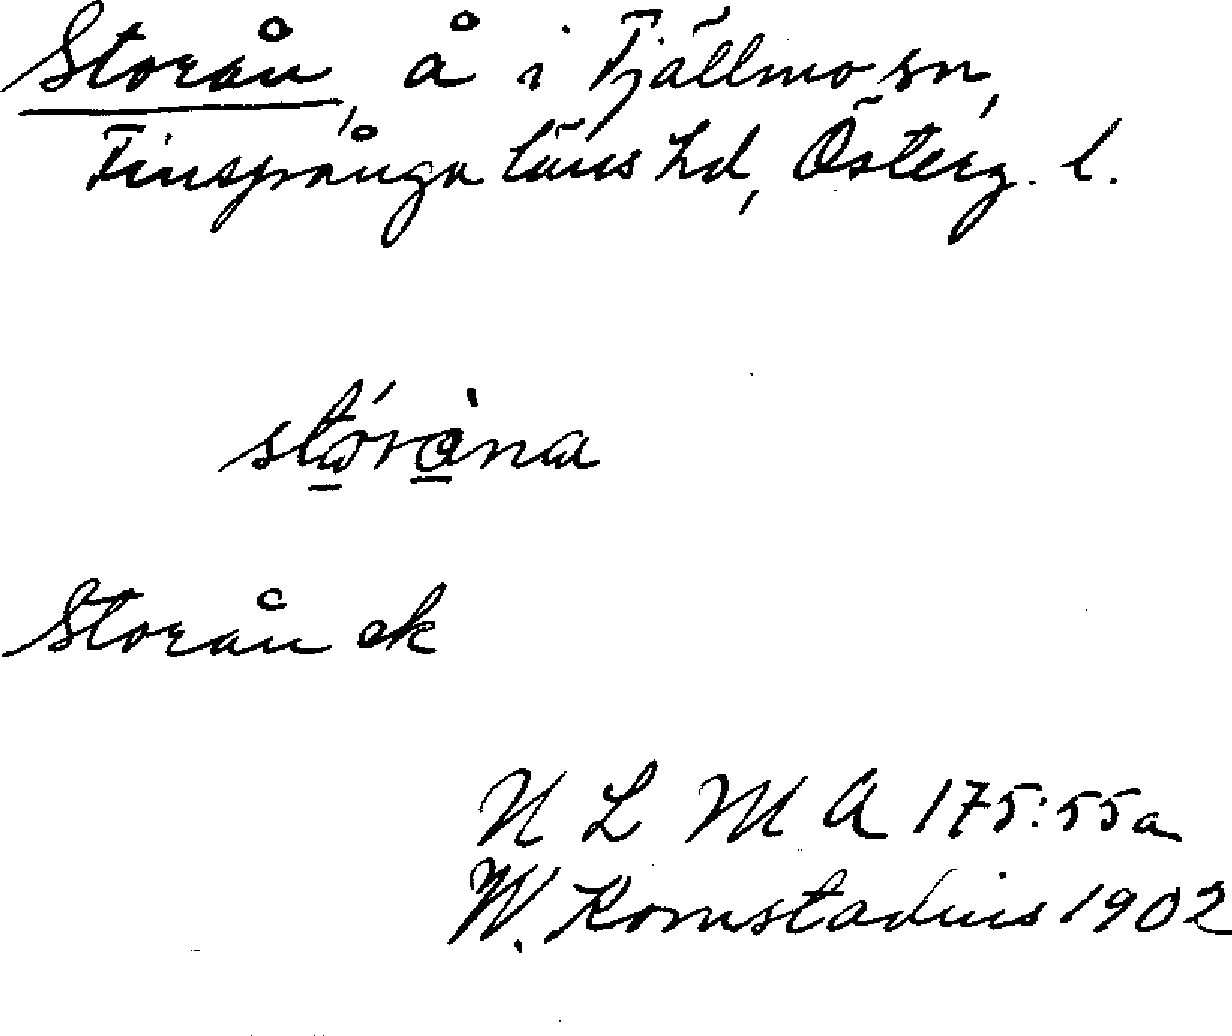 Storån, å i Tjällmo sn,
Finspånga läns hd, Österg. l.
Storån ek
N L M A 175:55a
W. Komstadius 1902